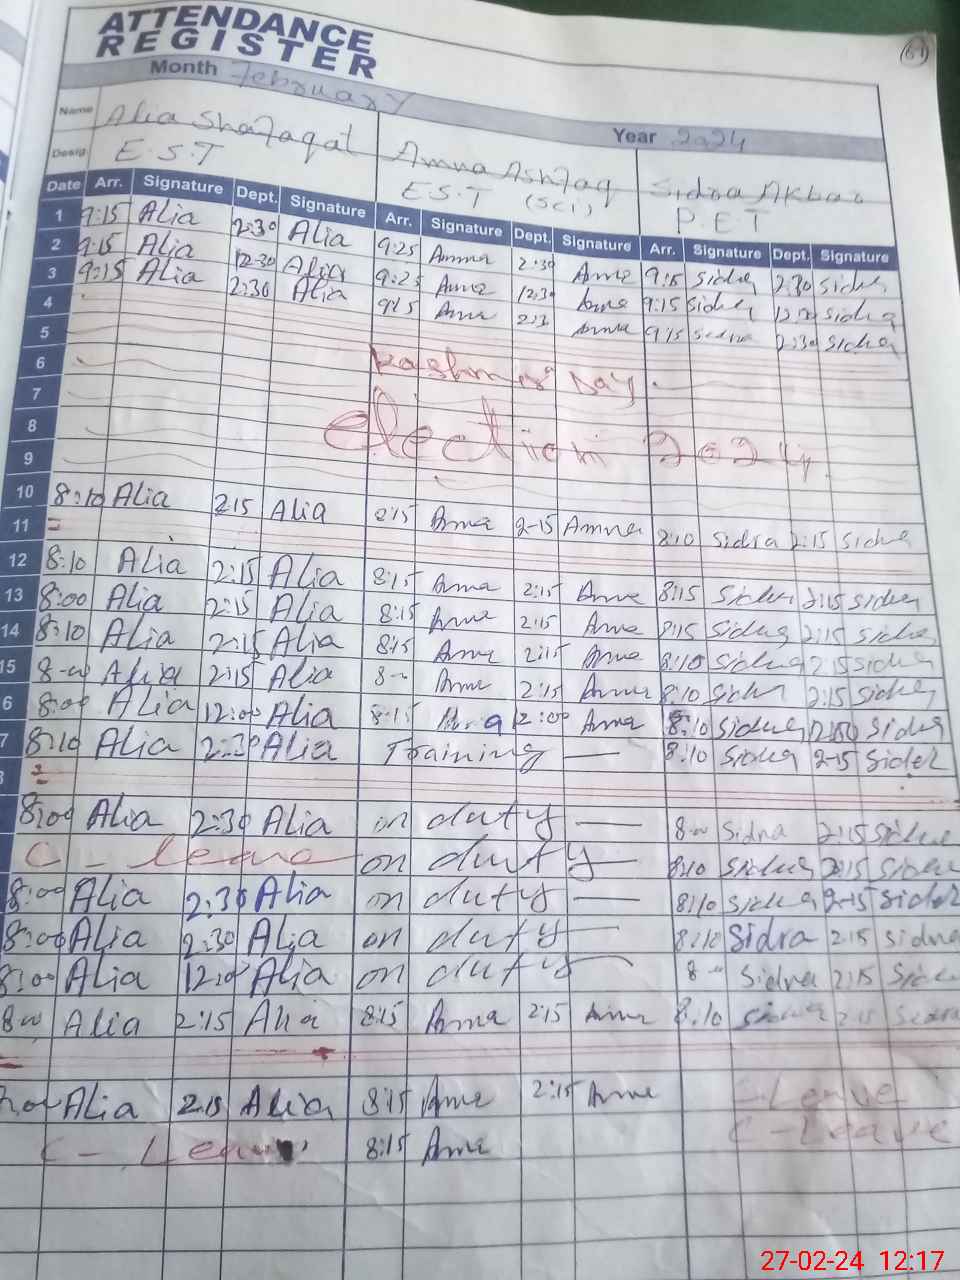 ATTENDANCE
REGISTER
61
Month February
Year 2024
Name Alia Shafaqat Amna Ashfaq Sidra Akbar
Desig. E.S.T E.S.T (Sci) P.E.T
Date Arr. Signature Dept. Signature Arr. Signature Dept. Signature Arr. Signature Dept. Signature
1 9:15 Alia 2:30 Alia 9:25 Amna 2:30 Amna 9:15 Sidra 2:30 Sidra
2 9:15 Alia 12:30 Alia 9:25 Amna 12:30 Amna 9:15 Sidra Sidra
3 9:15 Alia 2:30 Alia 9:15 Amna Amna 9:15 Sidra 2:30 Sidra
4
5
6 Kashmir Day
7
8 election 2024
9
10 8:10 Alia 2:15 Alia 8:15 Amna 2-15 Amna 8:10 Sidra 2:15 Sidra
11
12 8:10 Alia 2:15 Alia 8:15 Amna 2:15 Amna 8:15 Sidra 2:15 Sidra
13 8:00 Alia 2:15 Alia 8:15 Amna 2:15 Amna 8:15 Sidra 2:15 Sidra
14 8:10 Alia 2:15 Alia 8:15 Amna 2:15 Amna 8:10 Sidra 2:15 Sidra
15 8-00 Alia 2:15 Alia 8-00 Amna 2:15 Amna 8:10 Sidra 2:15 Sidra
6 8:00 Alia 12:00 Alia 8:15 Amna 12:00 Amna 8:10 Sidra Sidra
7 8:10 Alia 2:30 Alia Training — 8:10 Sidra 2-15 Sidra
8:00 Alia 2:30 Alia on duty — 8-00 Sidra 2:15 Sidra
C - leave on duty — 8:10 Sidra 2:15 Sidra
8:00 Alia 2:30 Alia on duty — 8:10 Sidra 2-15 Sidra
8:00 Alia 2:30 Alia on duty — 8:10 Sidra 2:15 Sidra
8:00 Alia 12:00 Alia on duty 8-00 Sidra 2:15 Sidra
8-00 Alia 2:15 Alia 8:15 Amna 2:15 Amna 8:10 Sidra 2:15 Sidra
Alia 2:15 Alia 8:15 Amna 2:15 Amna C-Leave
C - Leave 8:15 Amna C-Leave
27-02-24 12:17